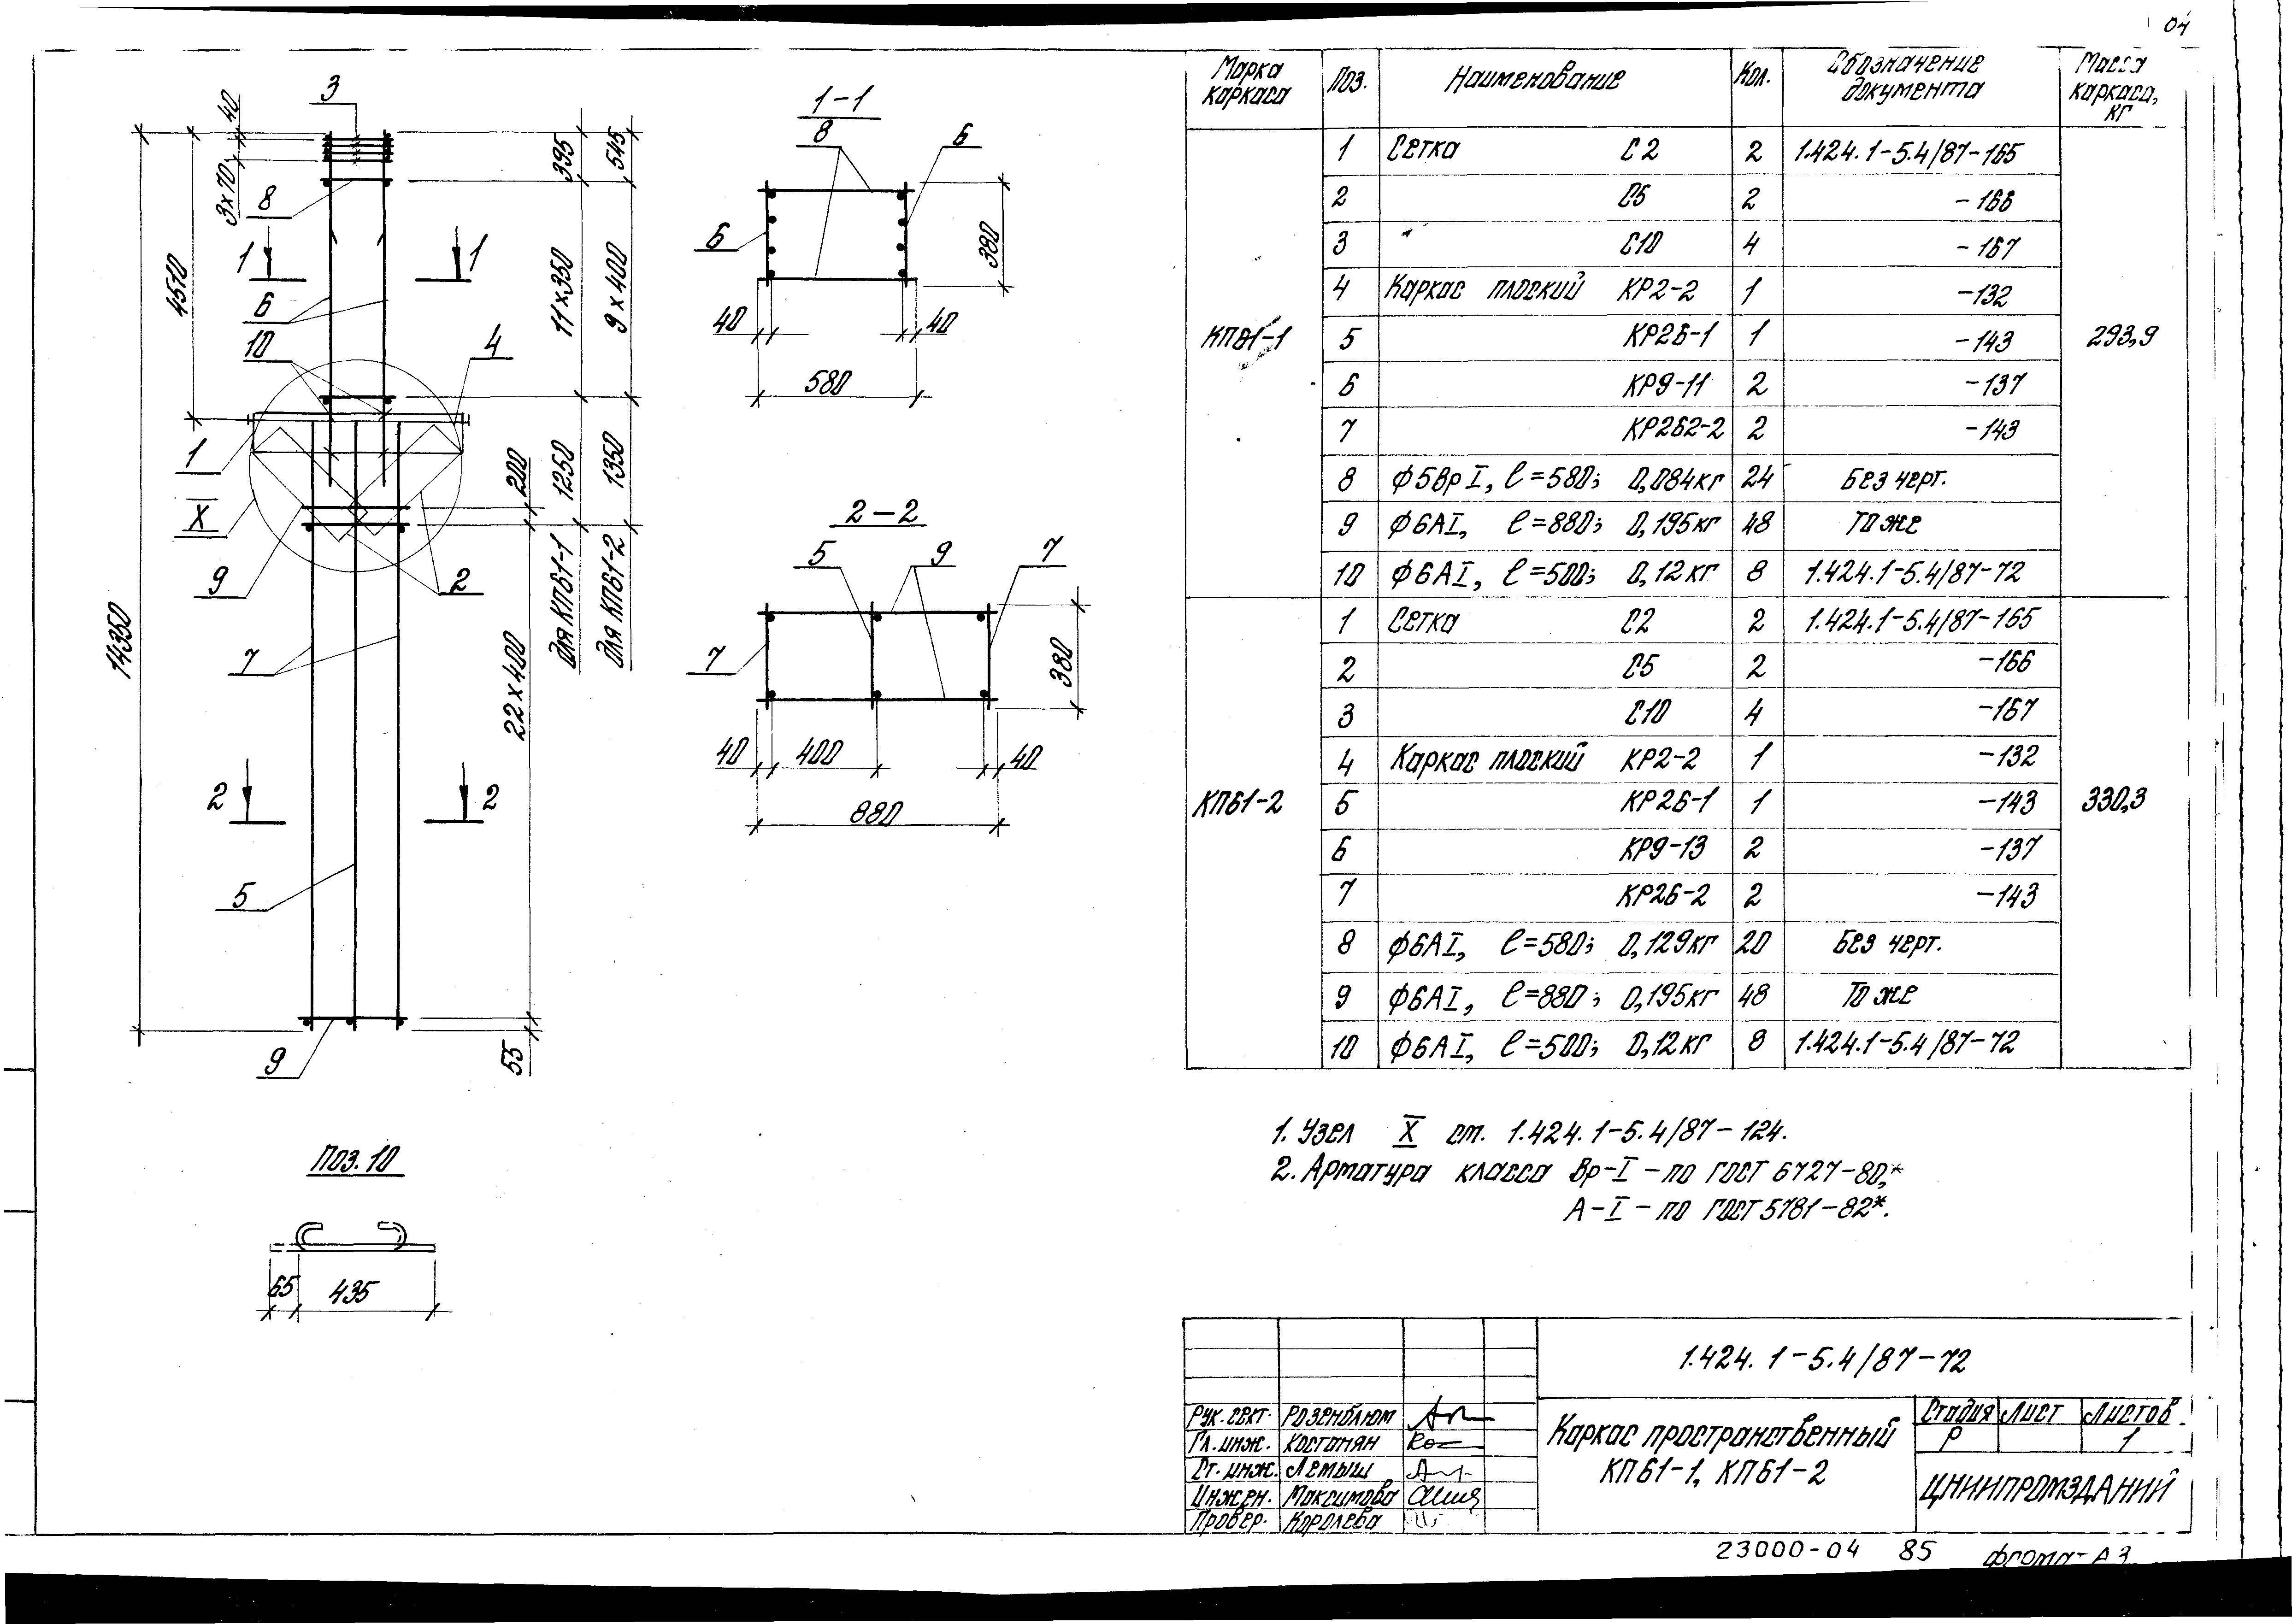 04
3
40
3х70
8
1 1
6
10
4
4510
14350
395
545
11х350
9х400
1250
1350
200
Для КП61-1
Для КП61-2
1
X
9
2
7
22х400
2 2
5
55
9
1-1
8
6
6
380
40 40
580
2-2
5 9 7
7
380
40 400 40
880
Поз.10
65 435
Марка каркаса Поз. Наименование Кол. Обозначение документа Масса каркаса, кг
КП61-1 293,9
1 Сетка С2 2 1.424.1-5.4/87-165
2 С5 2 -166
3 " С10 4 -167
4 Каркас плоский КР2-2 1 -132
5 КР26-1 1 -143
6 КР9-11 2 -137
7 КР262-2 2 -143
8 ϕ5ВрI, ℓ=580; 0,084кг 24 Без черт.
9 ϕ6АI, ℓ=880; 0,195кг 48 То же
10 ϕ6АI, ℓ=500; 0,12кг 8 1.424.1-5.4/87-72
КП61-2 330,3
1 Сетка С2 2 1.424.1-5.4/87-165
2 С5 2 -166
3 С10 4 -167
4 Каркас плоский КР2-2 1 -132
5 КР26-1 1 -143
6 КР9-13 2 -137
7 КР26-2 2 -143
8 ϕ6АI, ℓ=580; 0,129кг 20 Без черт.
9 ϕ6АI, ℓ=880; 0,195кг 48 То же
10 ϕ6АI, ℓ=500; 0,12кг 8 1.424.1-5.4/87-72
1. Узел X см. 1.424.1-5.4/87-124.
2. Арматура класса Вр-I - по ГОСТ 6727-80,*
А-I - по ГОСТ 5781-82*.
1.424.1-5.4/87-72
Рук. сект. Розенблюм
Гл. инж. Костанян
Ст. инж. Лемыш
Инжен. Максимова
Провер. Королева
Каркас пространственный
КП61-1, КП61-2
Стадия Лист Листов
Р 1
ЦНИИПРОМЗДАНИЙ
23000-04 85 формат А3